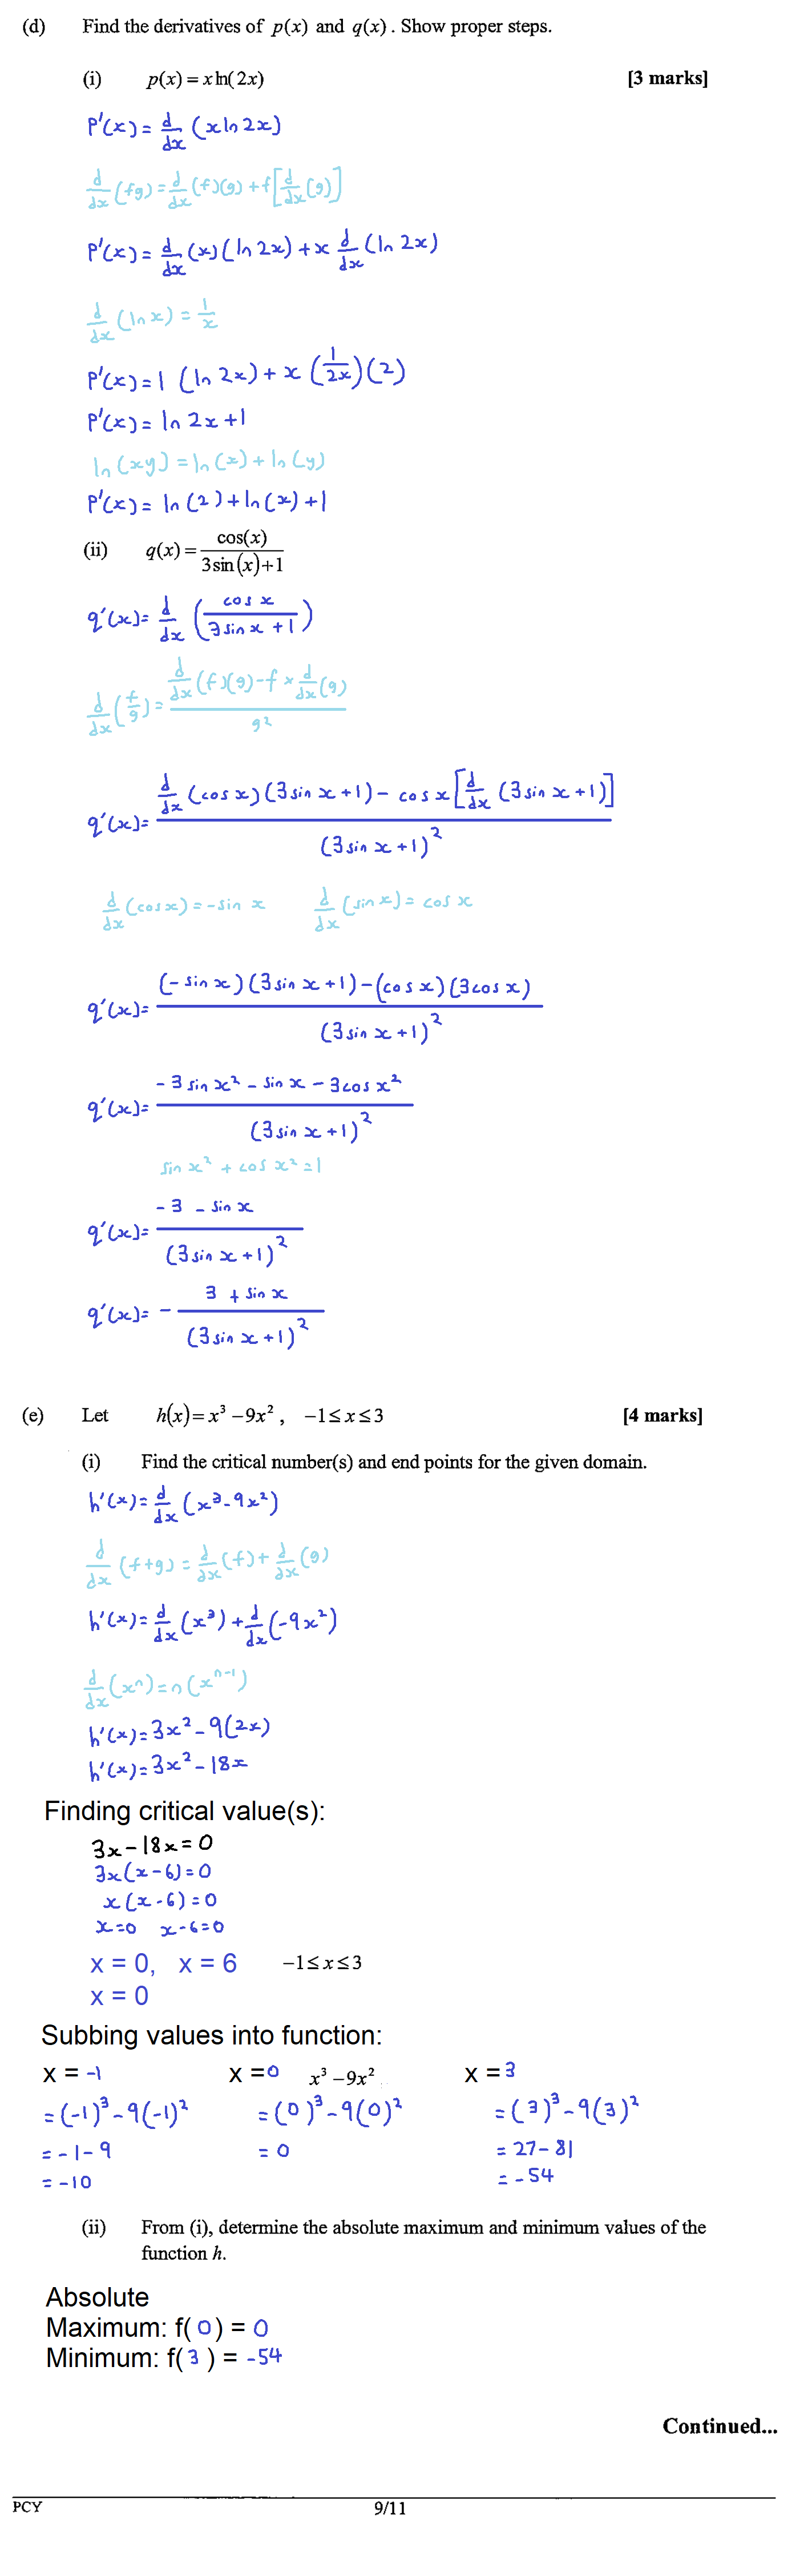 (d) Find the derivatives of p(x) and q(x). Show proper steps.
(i) p(x) = x ln(2x) [3 marks]
p'(x) = d/dx (x ln 2x)
d/dx (fg) = d/dx (f)(g) + f[d/dx (g)]
p'(x) = d/dx (x)(ln 2x) + x d/dx (ln 2x)
d/dx (ln x) = 1/x
p'(x) = 1 (ln 2x) + x (1/2x)(2)
p'(x) = ln 2x + 1
ln (xy) = ln (x) + ln (y)
p'(x) = ln (2) + ln (x) + 1
(ii) q(x) = cos(x)/3sin(x)+1
q'(x) = d/dx (cos x/3 sin x + 1)
d/dx (f/g) = d/dx (f)(g) - f × d/dx (g)/g²
q'(x) = d/dx (cos x)(3 sin x + 1) - cos x [d/dx (3 sin x + 1)]/(3 sin x + 1)²
d/dx (cos x) = - sin x d/dx (sin x) = cos x
q'(x) = (- sin x)(3 sin x + 1) - (cos x)(3 cos x)/(3 sin x + 1)²
q'(x) = - 3 sin x² - sin x - 3 cos x²/(3 sin x + 1)²
sin x² + cos x² = 1
q'(x) = - 3 - sin x/(3 sin x + 1)²
q'(x) = - 3 + sin x/(3 sin x + 1)²
(e) Let h(x) = x³ − 9x², −1 ≤ x ≤ 3 [4 marks]
(i) Find the critical number(s) and end points for the given domain.
h'(x) = d/dx (x³ - 9x²)
d/dx (f+g) = d/dx (f) + d/dx (g)
h'(x) = d/dx (x³) + d/dx (-9x²)
d/dx (xⁿ) = n (xⁿ⁻¹)
h'(x) = 3x² - 9(2x)
h'(x) = 3x² - 18x
Finding critical value(s):
3x - 18x = 0
3x(x - 6) = 0
x(x - 6) = 0
x = 0 x - 6 = 0
x = 0, x = 6 −1 ≤ x ≤ 3
x = 0
Subbing values into function:
x = -1 x = 0 x³ − 9x² x = 3
= (-1)³ - 9(-1)² = (0)³ - 9(0)² = (3)³ - 9(3)²
= -1 - 9 = 0 = 27 - 81
= -10 = -54
(ii) From (i), determine the absolute maximum and minimum values of the
function h.
Absolute
Maximum: f( 0 ) = 0
Minimum: f( 3 ) = -54
Continued...
PCY 9/11